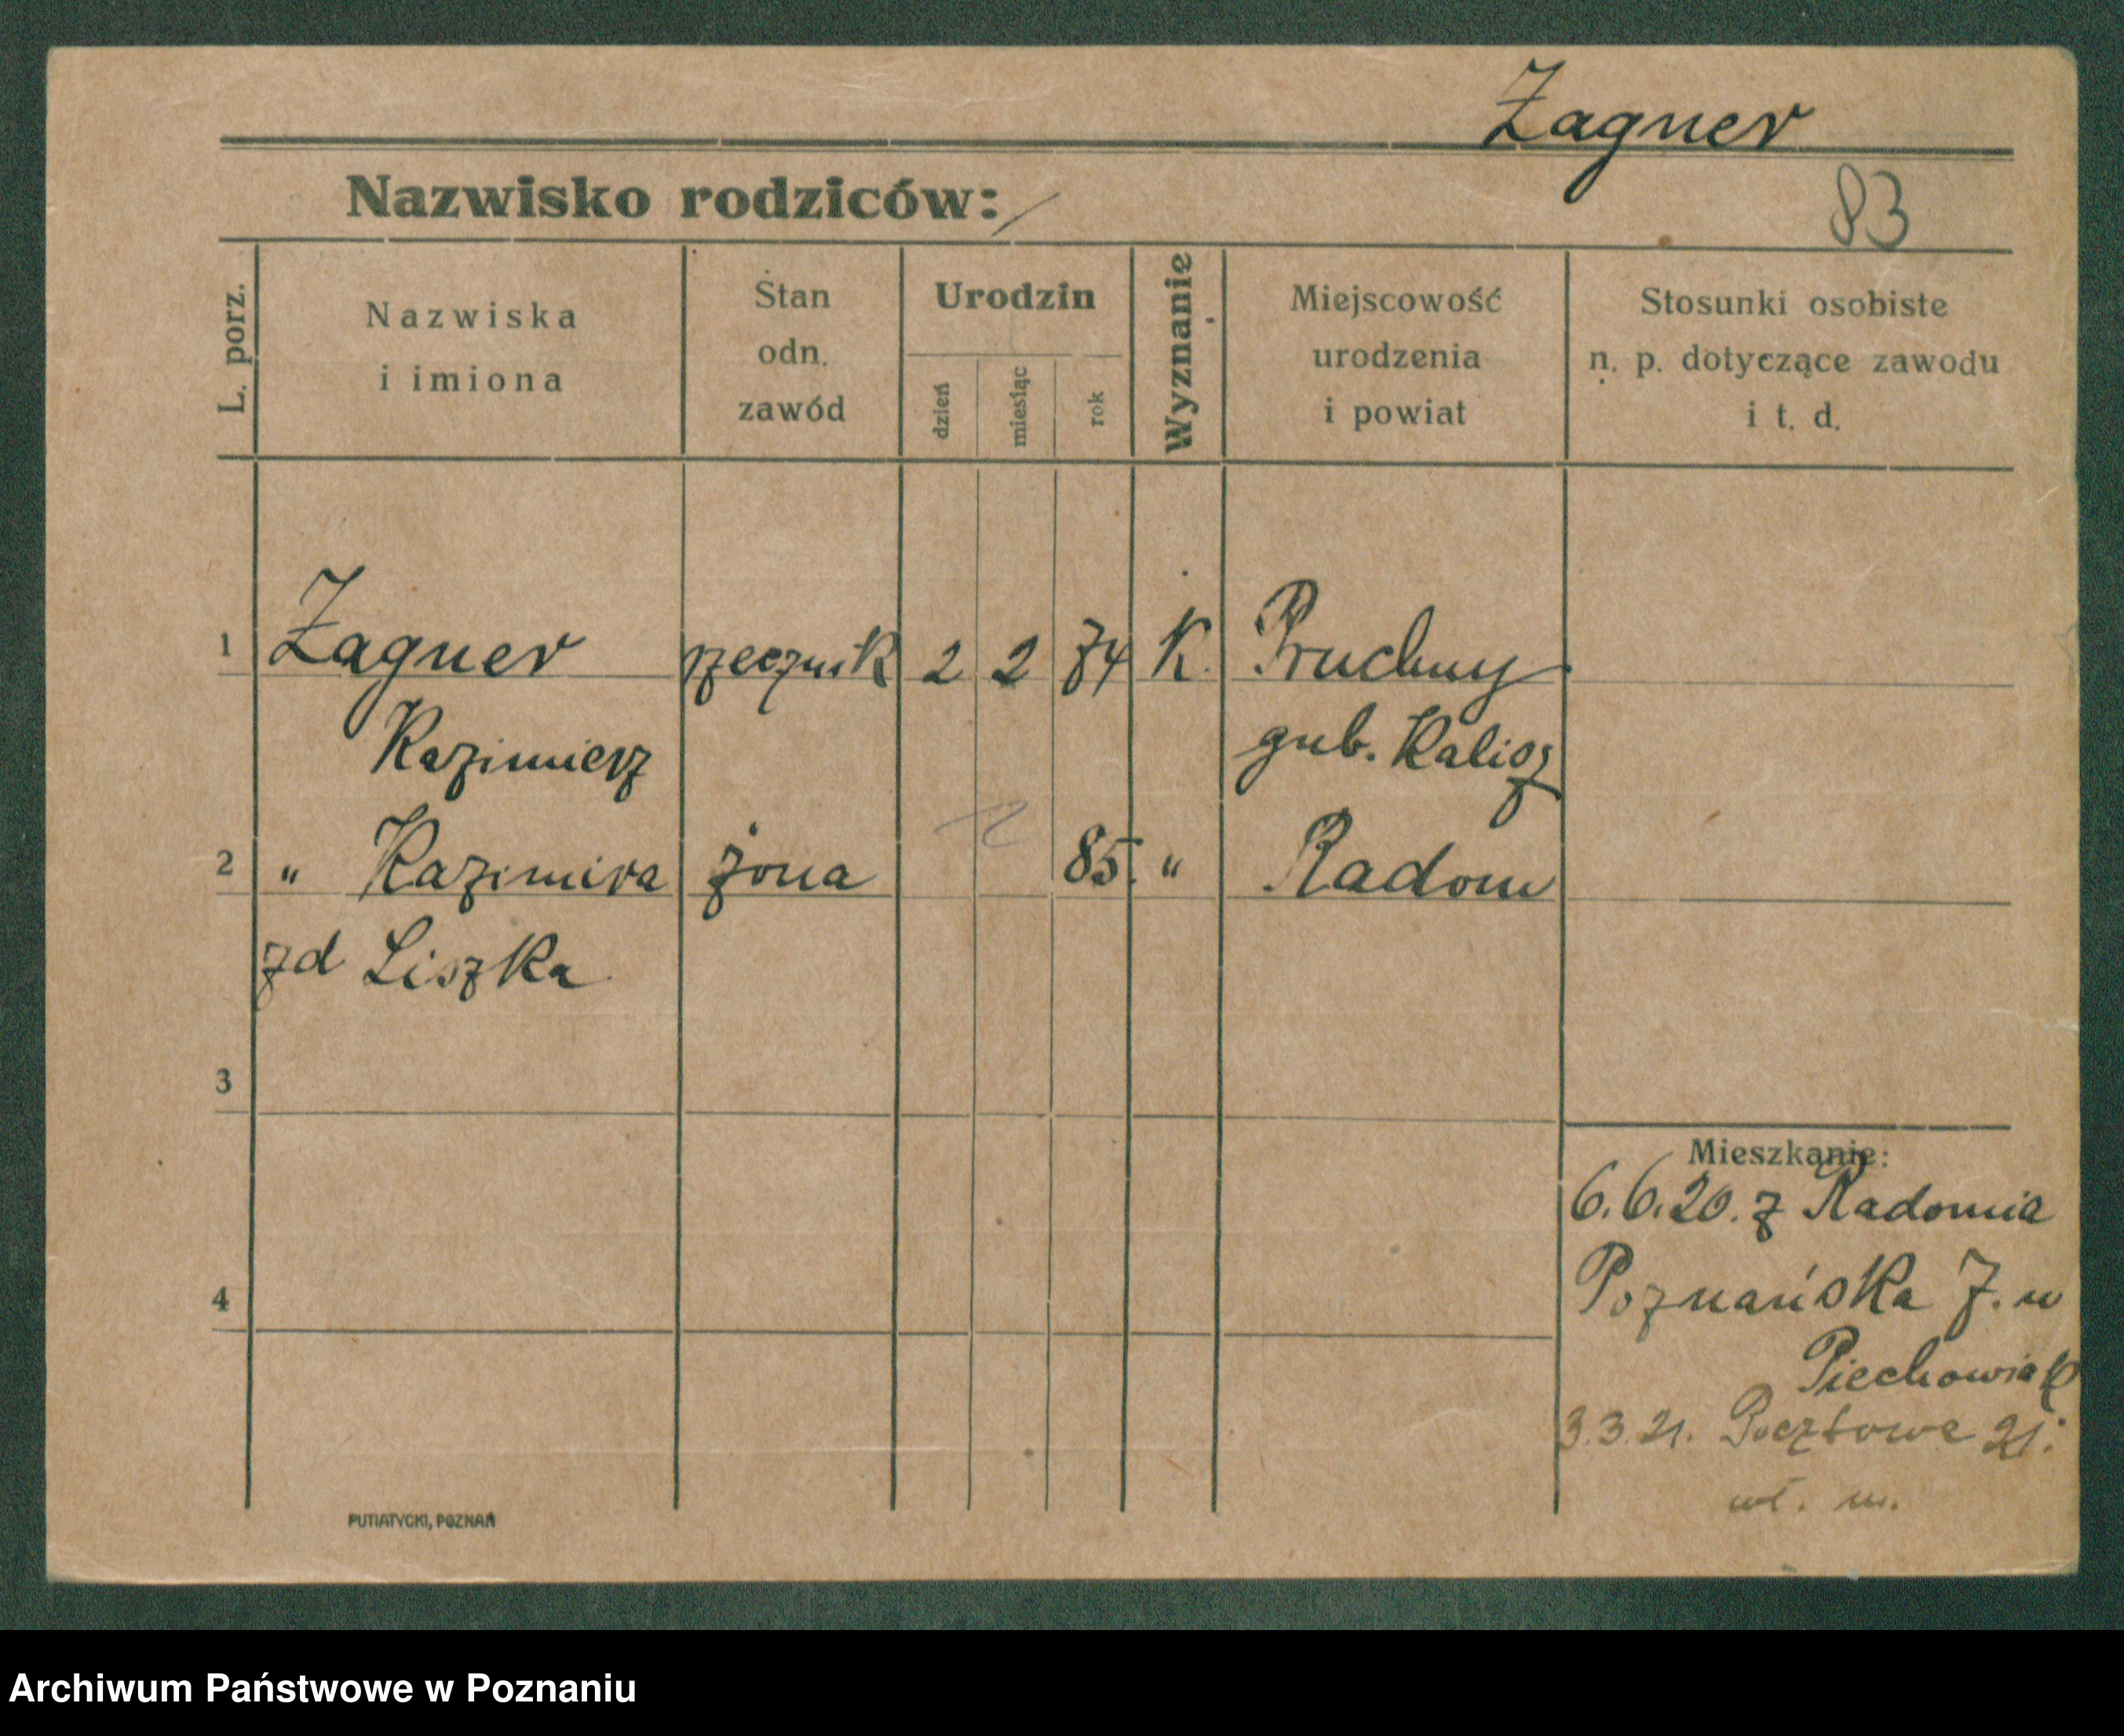 Zagner
Nazwisko rodziców: /
83
L. porz.
Nazwiska
i imiona
Stan
odn.
zawód
Urodzin
dzień
miesiąc
rok
Wyznanie
Miejscowość
urodzenia
i powiat
Stosunki osobiste
n. p. dotyczące zawodu
i t. d.
1 Zagner rzeźnik 2 2 74 K. Pruchny
Kazimierz gub. Kalisz
2 " Kazimira żona 85. " Radom
zd Liszka
3
4
Mieszkanie:
6.6.20. z Radomia
Poznańska 7. u
Piechowiak
3.3.21. Pocztowe 21.
wł. m.
PUTIATYCKI, POZNAŃ
Archiwum Państwowe w Poznaniu